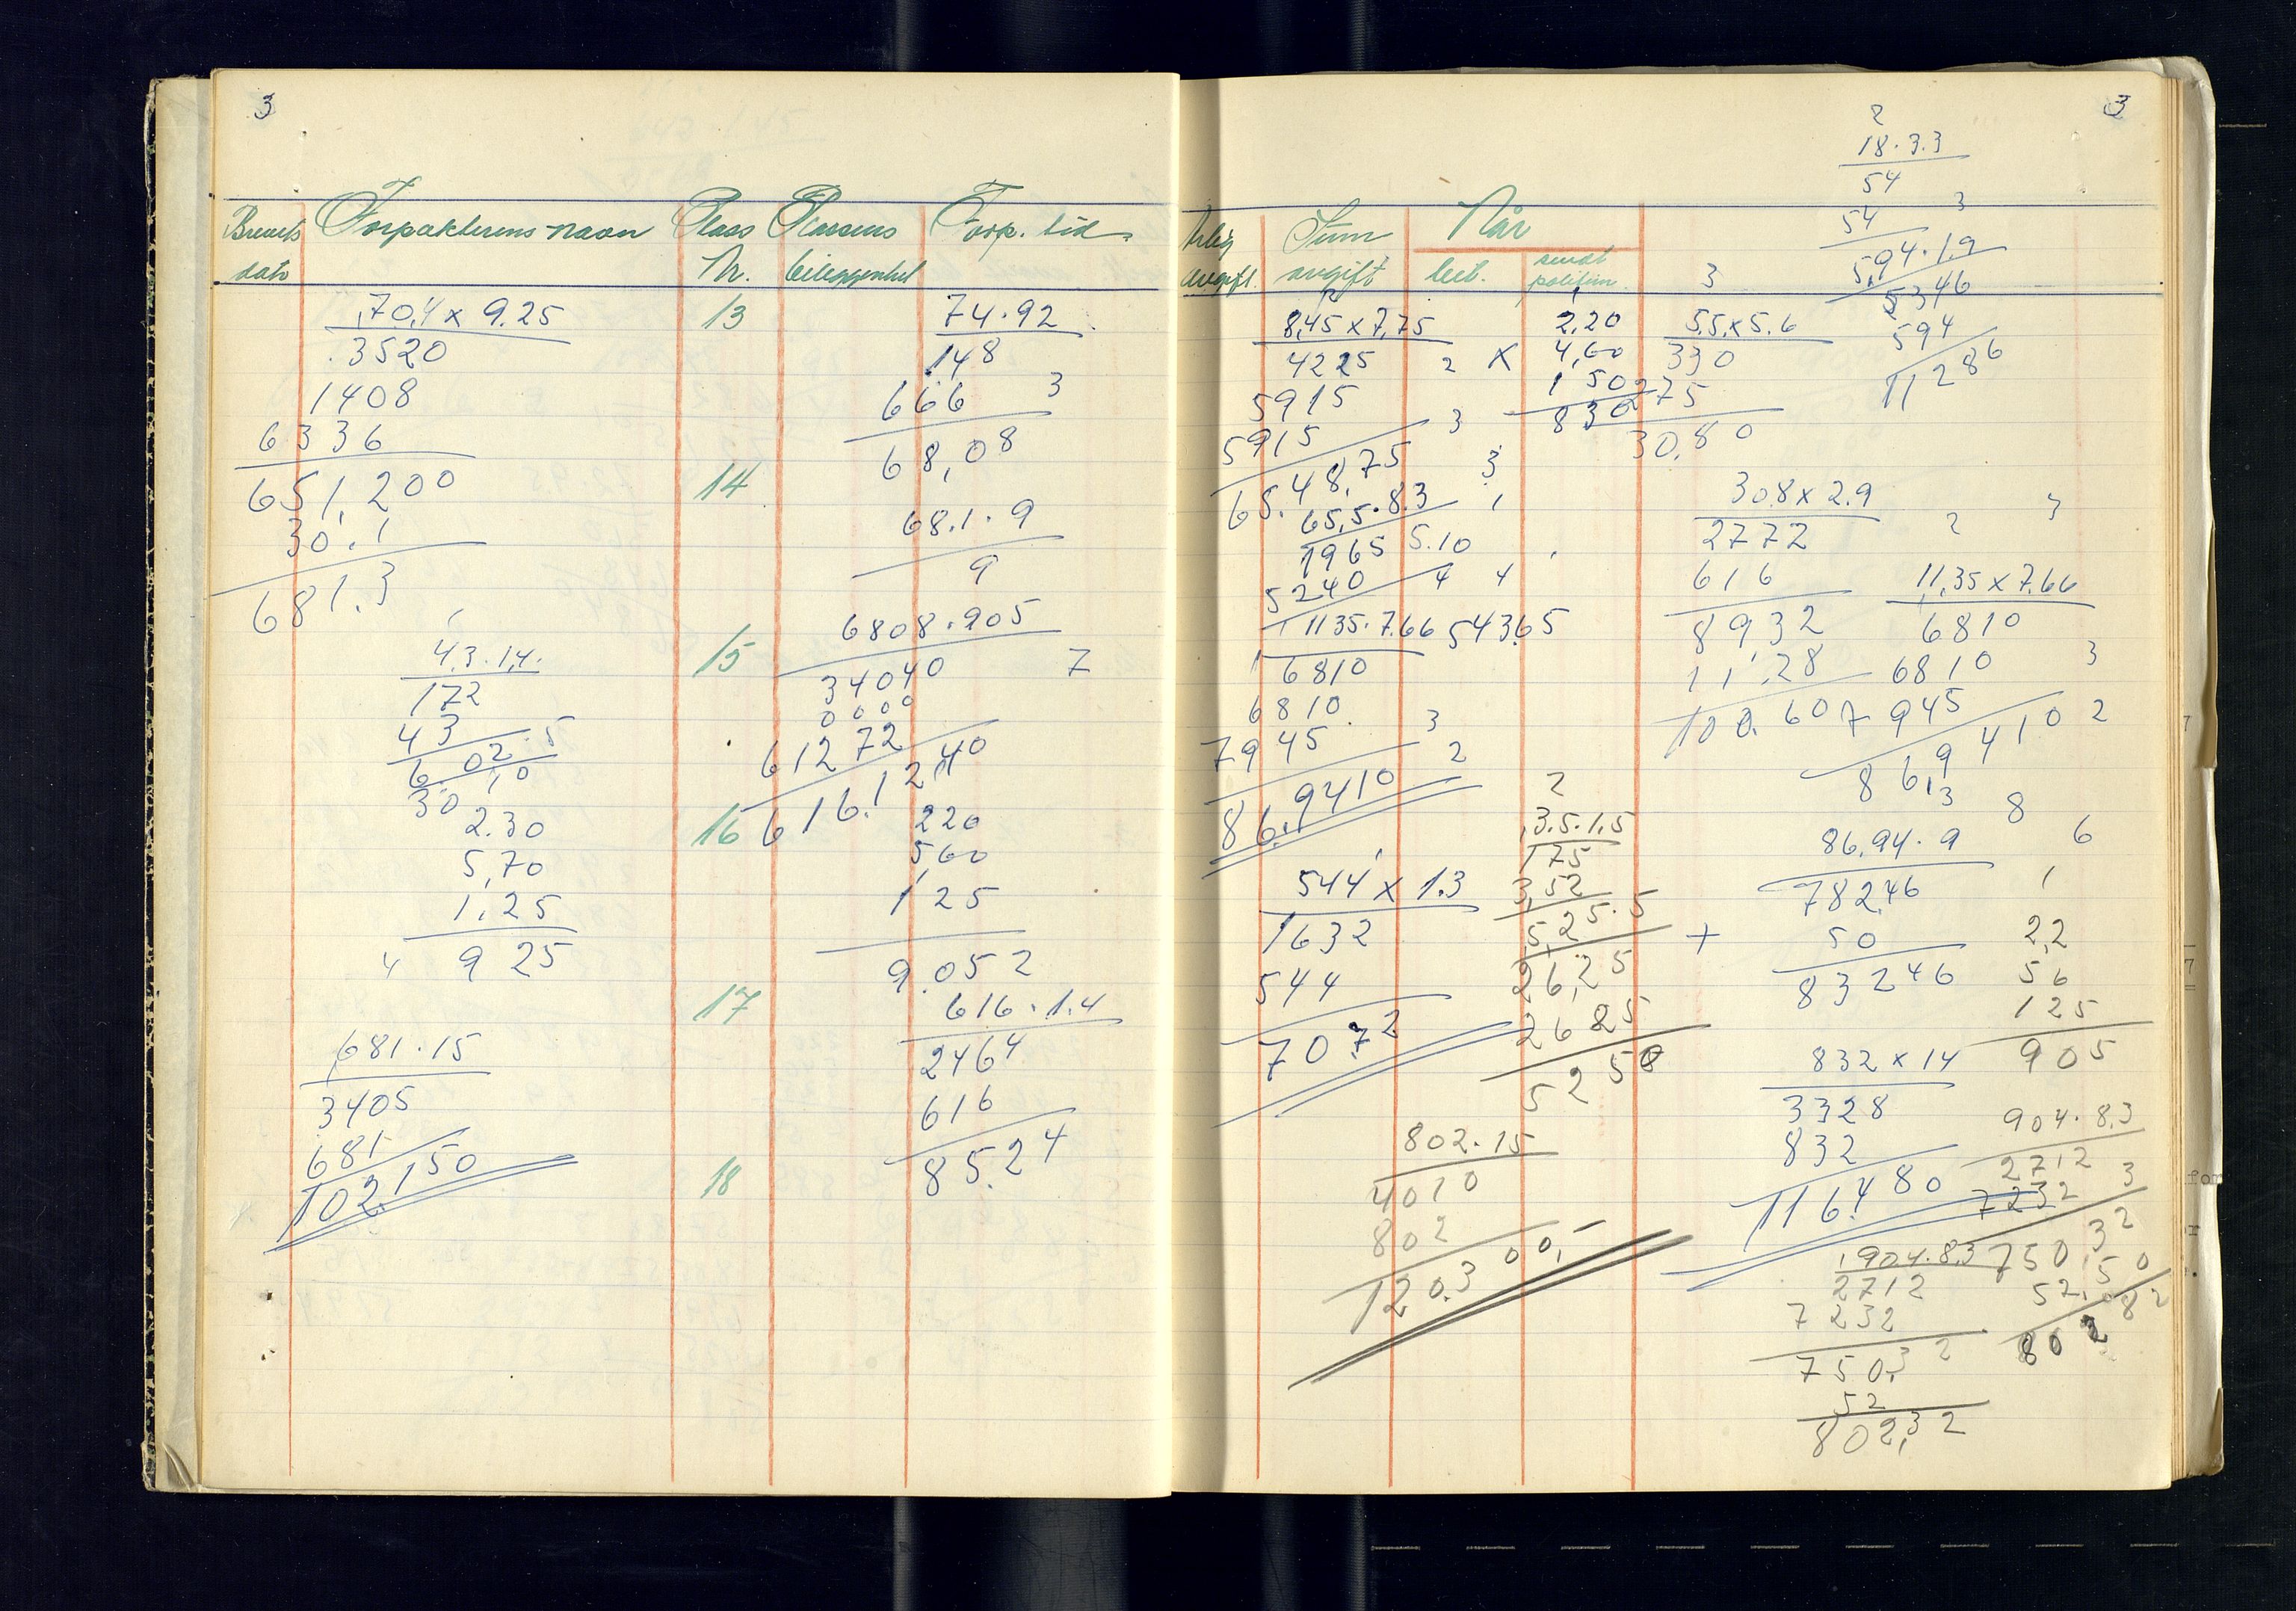 3
Forpakterens navn Plass Plassens Forp. tid
dato Nr. beleggenhet
70,4 x 9.25 13 74.92
3520 148
1408 666 3
6336 68,08
651,200 14
30.1 68.1.9
681.3 9
6808.905
4.3.1,4. 15 34040 7
172 0000
43 61272
6.02.5 616.1240
30,10
2.30 16 220
5,70 5,60
1,25 1,25
4 9 25 9.052
17 616.1.4
681.15 2464
3405 616
681 85.24
102.150 18
3
2
18.3.3
54
54 3
5,94.1.9
5346
594
11286
Årlig Sum Når
avgift. avgift bet. sendt
politim. 3
8,45 x 7,75 2,20 5.5.x5.6
4225 2 x 4,60 330
5915 1 50 275
5915 3 830 30,80
65.48,75 3
65,5.8.3 1 308x2.9
1965 5.10 2772 2 3
5240 4 4 616 11,35 x 7.66
1135.7.66 54365 8932 6810
6810 11,28 6810 3
6810 3 100.60 7945 2
7945 2 86,9410
86,9410 2 3 8
3.5.1,5 86,94.9 6
544 x 1.3 175 782,46 1
1632 3,52
544 5,25.5 + 50 2,2
707,2 26,25 83246 56
2625 125
5250 832 x 14 905
3328
802.15 832 904.8,3
4010 116,480 2712
802 7232 3
120.300,- 904.8,3 750,32
2712 52,50
7232 802 82
750,32
52
802,32